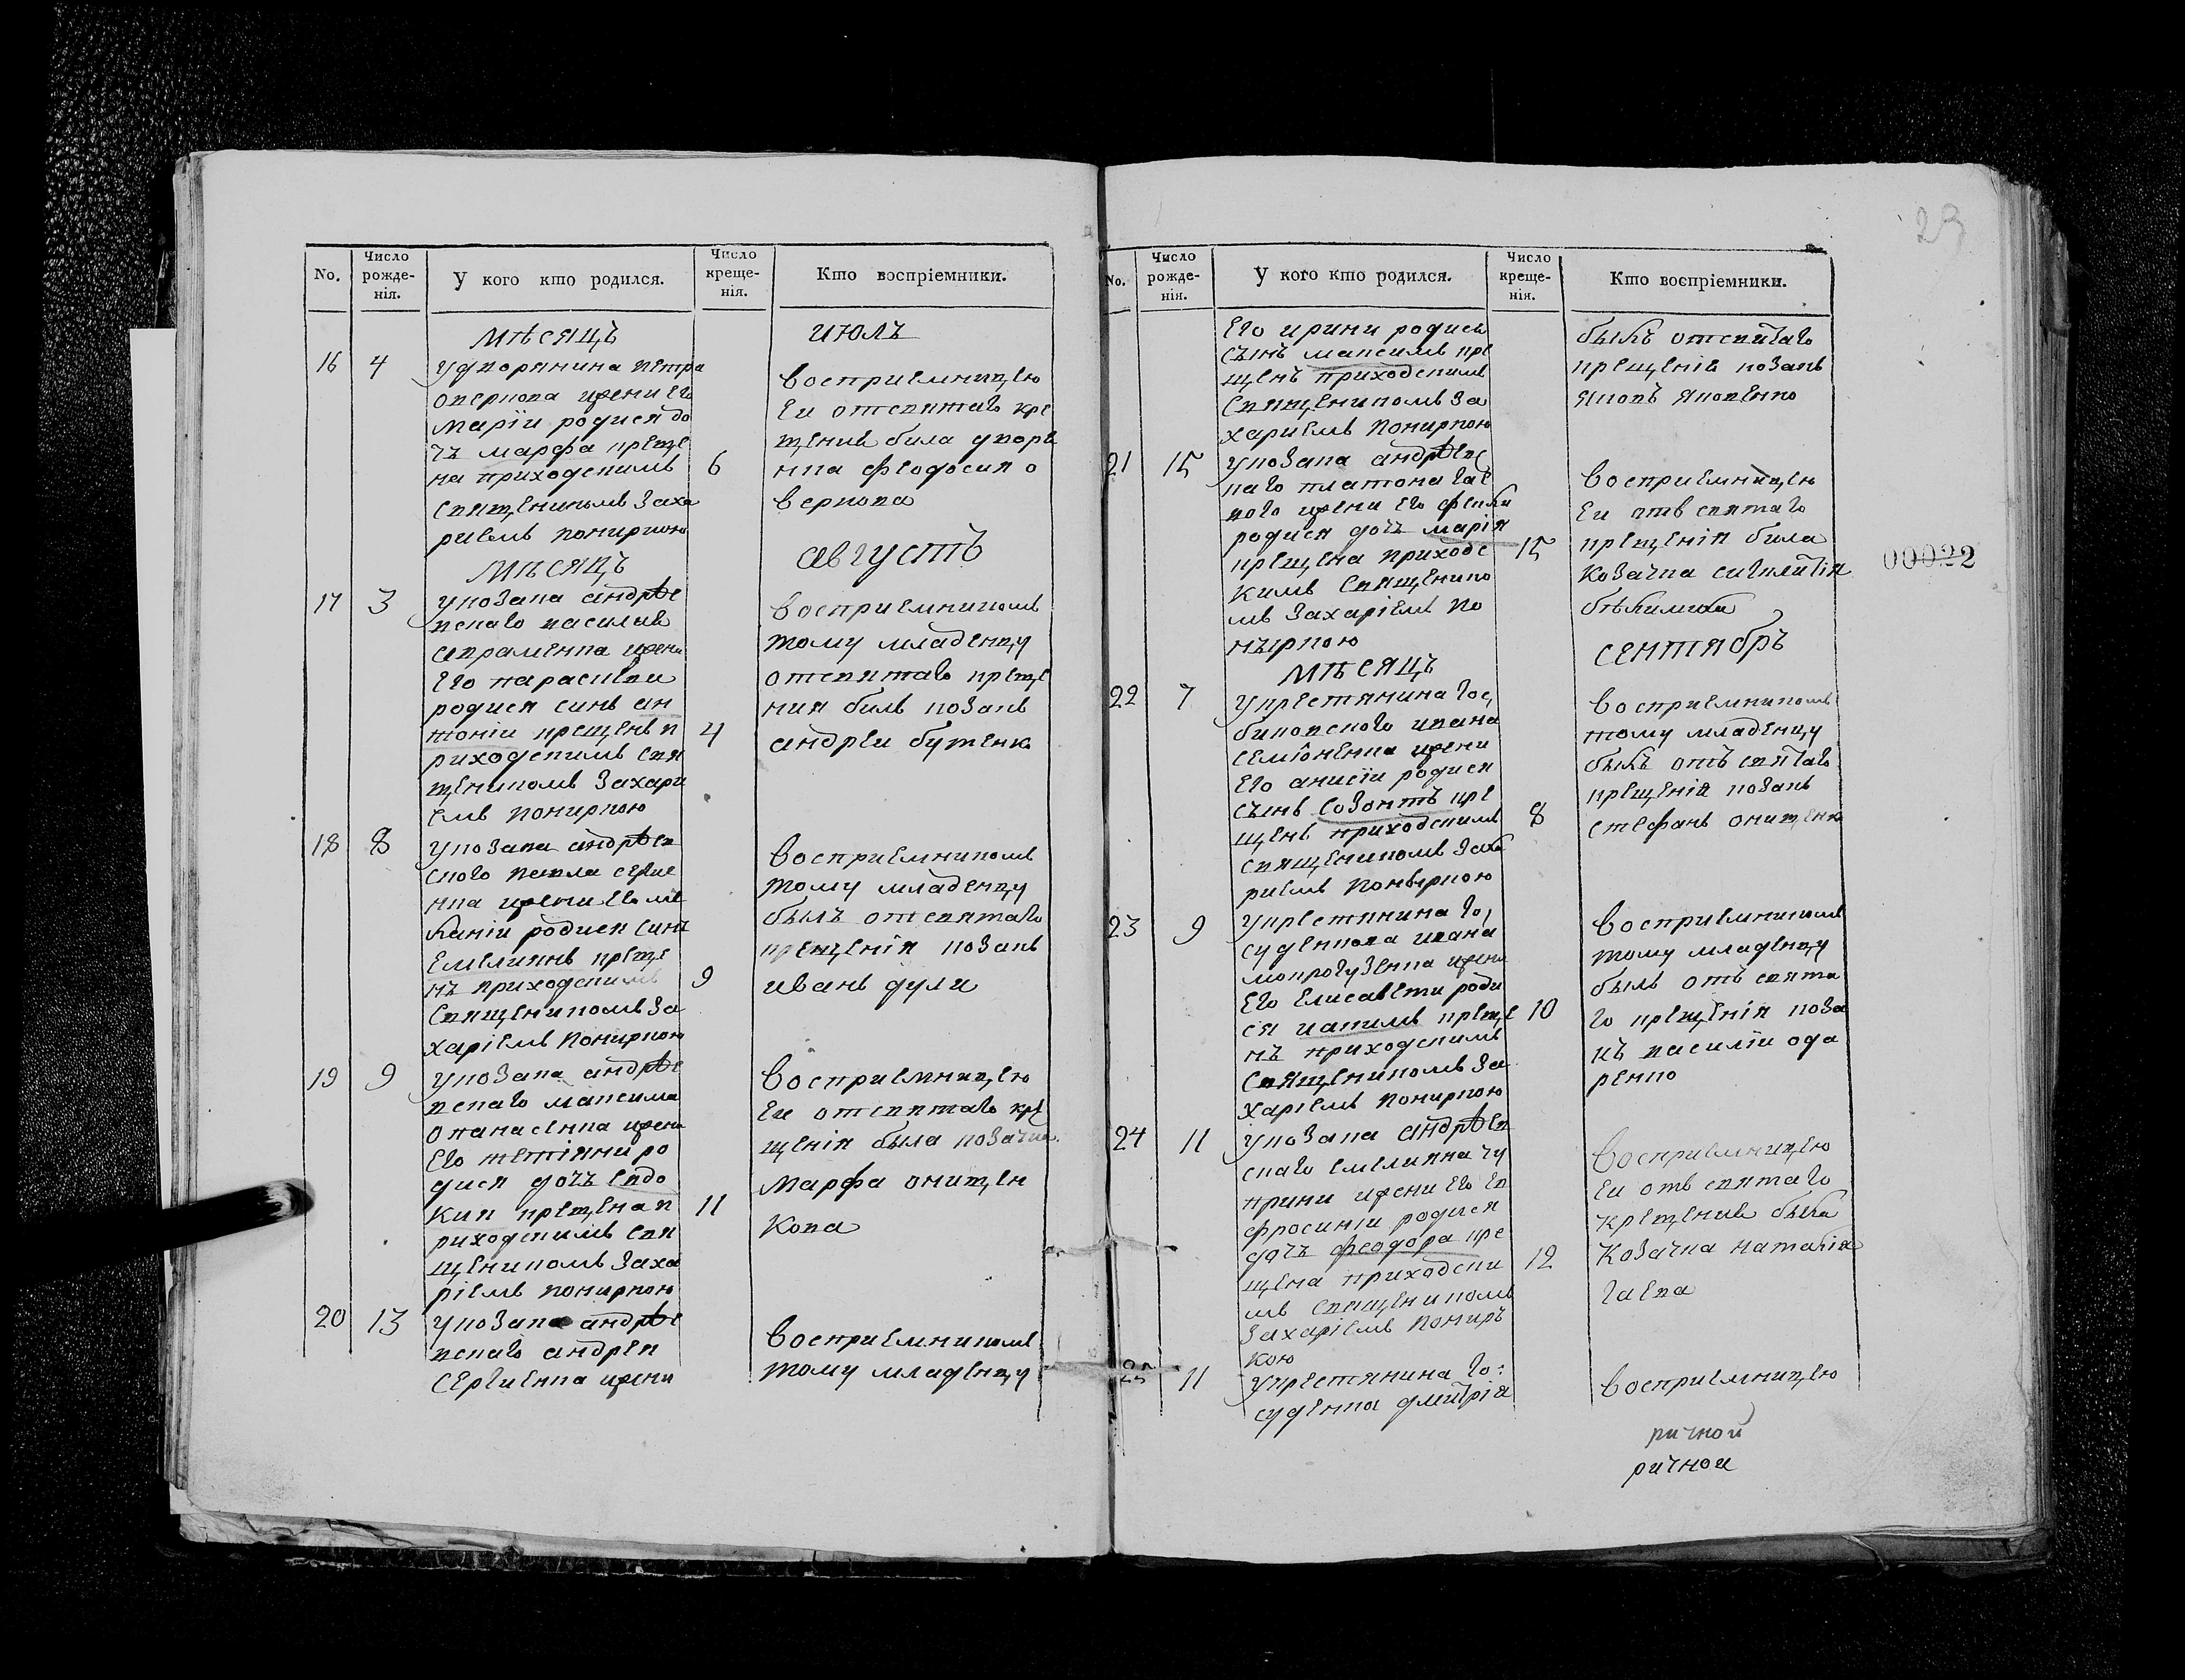 23
No.
Число рожде-нія.
У кого кто родился.
Число креще-нія.
Кто воспріемники.
мѣсяцъ
июлъ
16 4
удворянина петра
оверкова жени его
маріи родися до
чъ марфа креще
на приходскимъ 6
священикомъ заха
риемъ кониркою
восприемницею
еи отсвятаго кре
щения била дворя
нка феодосия о
веркова
мѣсяцъ
августъ
17 3
укозака андрѣе
вскаго василия
авраменка жени
его параскеви
родися синъ ан
тоніи крещенъ п 4
риходскимъ свя
щеникомъ захари
емъ кониркою
восприемникомъ
тому младенцу
отсвятаго креще
ния билъ козакъ
андреи бутенко
18 8
укозака андрѣев
ского павла сергие
нка жени его ме
ланіи родися синъ
емелиянъ креще
нъ приходскимъ 9
священикомъ за
харіемъ кониркою
восприемникомъ
тому младенцу
былъ отсвятаго
крещенія козакъ
иванъ дули
19 9
укозака андрѣе
вскаго максима
опанасенка жени
его тетіяни ро
дися дочъ евдо
кия крещена п 11
риходскимъ свя
щеникомъ заха
ріемъ кониркою
восприемницею
еи отсвятаго кре
щенія была козачка
марфа онищен
кова
20 13
укозака андрѣе
вскаго андрея
сергиенка жени
восприемникомъ
тому младенцу
No.
Число рожде-нія.
У кого кто родился.
Число креще-нія.
Кто воспріемники.
его ирини родися
сынъ максимъ кре
щенъ приходскимъ
священикомъ за
хариемъ кониркою
былъ отсвятаго
крещенія козакъ
яковъ яковенко
21 15
укозака андрѣевс
каго платона гае
вого жени его феклы
родися дочъ марія
крещена приходс 15
кимъ священико
мъ захаріемъ ко
ныркою
восприемницею
еи отъ святаго
крещенія била
козачка сигклитія
мѣсяцъ
сентябръ
22 7
укрестянина гос,
биковского ивана
семіоненка жени
его анисіи родися
сынъ созонтъ кре
щенъ приходскимъ 8
священикомъ заха
риемъ коныркою
восприемникомъ
тому младенцу
былъ отъ святаго
крещенія козакъ
стефанъ онищенко
23 9
укрестянина го,
суденкова ивана
мокрогузенка жени
его елисавети роди
ся иакимъ креще 10
нъ приходскимъ
священикомъ за
харіемъ кониркою
восприемникомъ
тому младенцу
былъ отъ свята
го крещенія коза
къ василіи ода
ренко
24 11
укозака андрѣев
скаго емелияна чу
прини жени его ев
фросиніи родися
дочъ феодора кре
щена приходски 12
мъ священикомъ
захаріемъ конир
кою
восприемницею
еи отъ святаго
крещения была
козачка наталія
гаева
25 11
укрестянина го:
суденка дмитрія
восприемницею
ричной
ричнои
00022